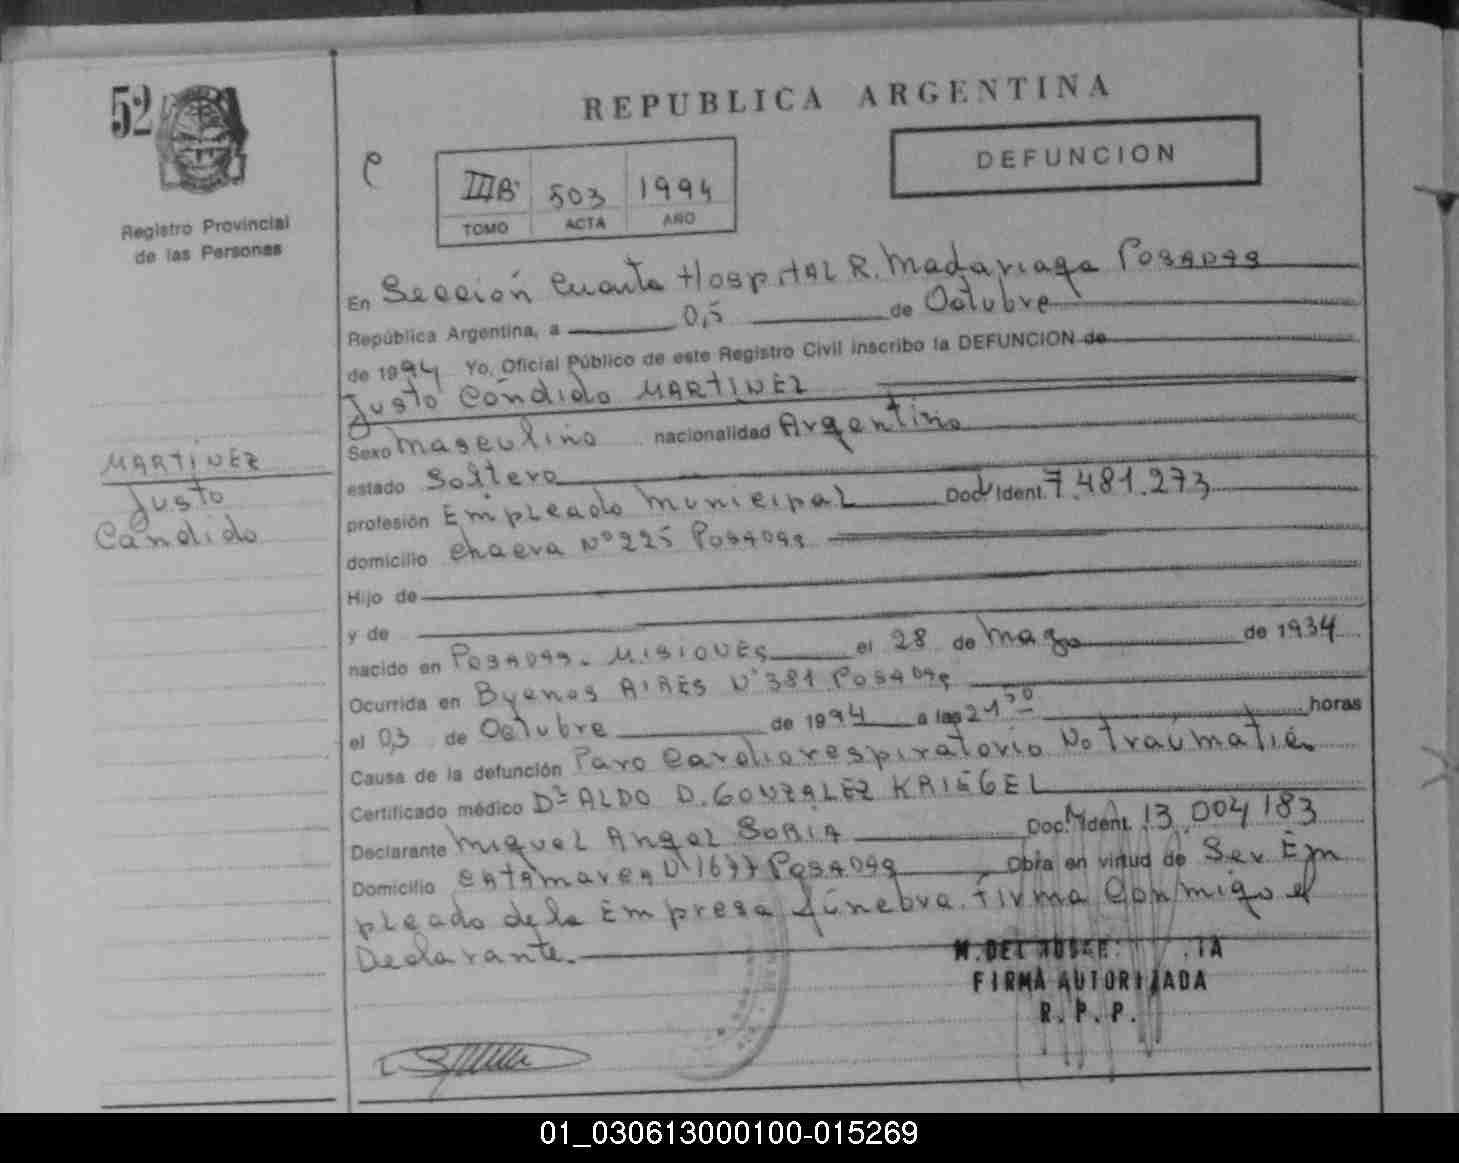 52
REPUBLICA ARGENTINA
DEFUNCION
IIIB° 503 1994
TOMO ACTA AÑO
Registro Provincial
de las Personas
En Sección Cuarta Hospital R. Madariaga Posadas
República Argentina, a 05 de Octubre
de 1994 Yo, Oficial Público de este Registro Civil inscribo la DEFUNCION de
Justo Cándido MARTINEZ
Sexo masculino nacionalidad Argentino
estado Soltero
profesión Empleado Municipal Doc. Ident. 7.481.273
domicilio N° 225 Posadas
Hijo de
y de
nacido en Posadas. MISIONES el 28 de de 1934
Ocurrida en Buenos AIRES N° 381 Posadas
el 03 de Octubre de 1994 a las 21 30 horas
Causa de la defunción Paro Cardiorespiratorio No traumático
Certificado médico Dr ALDO D. GONZALEZ KRIEGEL
Declarante Miguel Angel SORIA Doc. Ident. 13.004.183
Domicilio Catamarca N° 1677 Posadas Obra en virtud de Ser Em
pleado de la Empresa fúnebre. firma Conmigo el
Declarante.
MARTINEZ
Justo
Cándido
M. DEL
FIRMA AUTORIZADA
R. P. P.
01_030613000100-015269